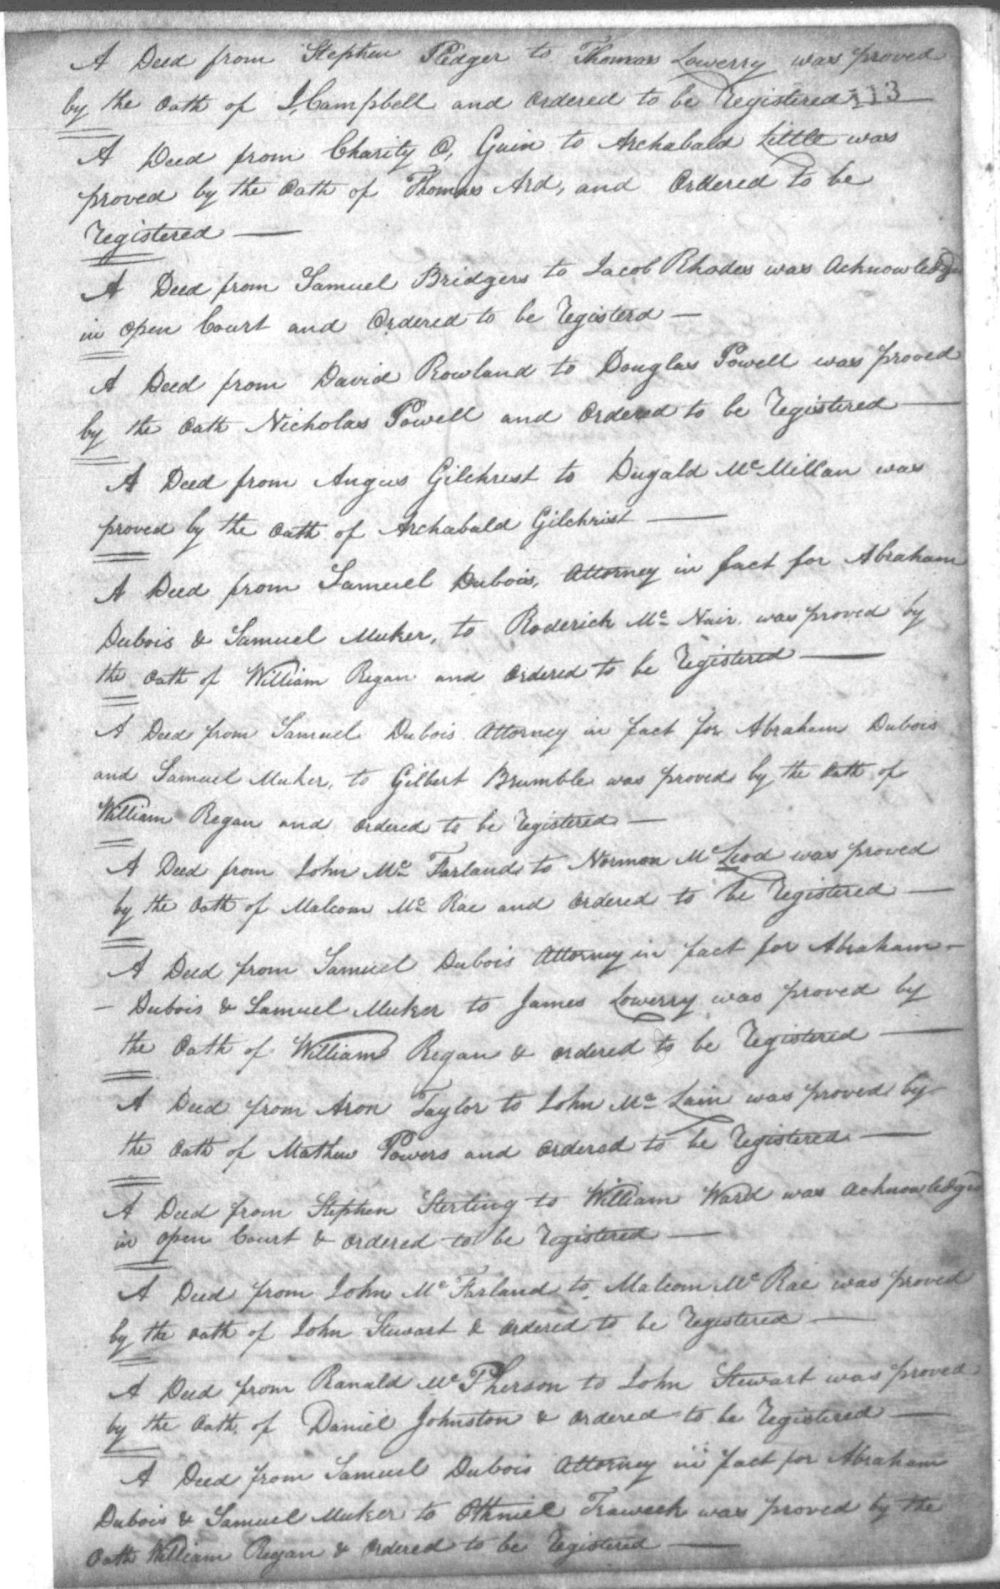 A Deed from Stephen Pledger to Thomas Lowerry was proved
by the Oath of J, Campbell and Ordered to be Registered 113
A Deed from Charity O, Guin to Archabald Little was
proved by the Oath of Thomas Ard, and Ordered to be
Registered —
A Deed from Samuel Bridgers to Jacob Rhodes was Acknowledged
in Open Court and Ordered to be Registerd —
A Deed from David Rowland to Douglas Powell was proved
by the Oath Nicholas Powell and Ordered to be Registered —
A Deed from Angus Gilchrest to Dugald Mc Millan was
proved by the Oath of Archabald Gilchrist —
A Deed from Samuel Dubois, Attorney in fact for Abraham
Dubois & Samuel Muker, to Roderick Mc Nair was proved by
the Oath of William Regan and Ordered to be Registered —
A Deed from Samuel Dubois Attorney in fact for Abraham Dubois
and Samuel Muker, to Gilbert Brumble was proved by the Oath of
William Regan and Ordered to be Registered —
A Deed from John Mc Farland to Normon Mc Leod was proved
by the Oath of Malcom Mc Rae and Ordered to be Registered —
A Deed from Samuel Dubois Attorney in fact for Abraham —
— Dubois & Samuel Muker to James Lowerry was proved by
the Oath of William Regan & Ordered to be Registered —
A Deed from Aron Taylor to John Mc Lain was proved by
the Oath of Mathew Powers and Ordered to be Registered —
A Deed from Stephen Sterling to William Ward was Acknowledged
in Open Court & Ordered to be Registered —
A Deed from John Mc Farland to Malcom Mc Rae was proved
by the Oath of John Stewart & Ordered to be Registered —
A Deed from Ranald Mc Pherson to John Stewart was proved
by the Oath of Daniel Johnston & Ordered to be Registered —
A Deed from Samuel Dubois Attorney in fact for Abraham
Dubois & Samuel Muker to Othniel Traweek was proved by the
Oath William Regan & Ordered to be Registered —